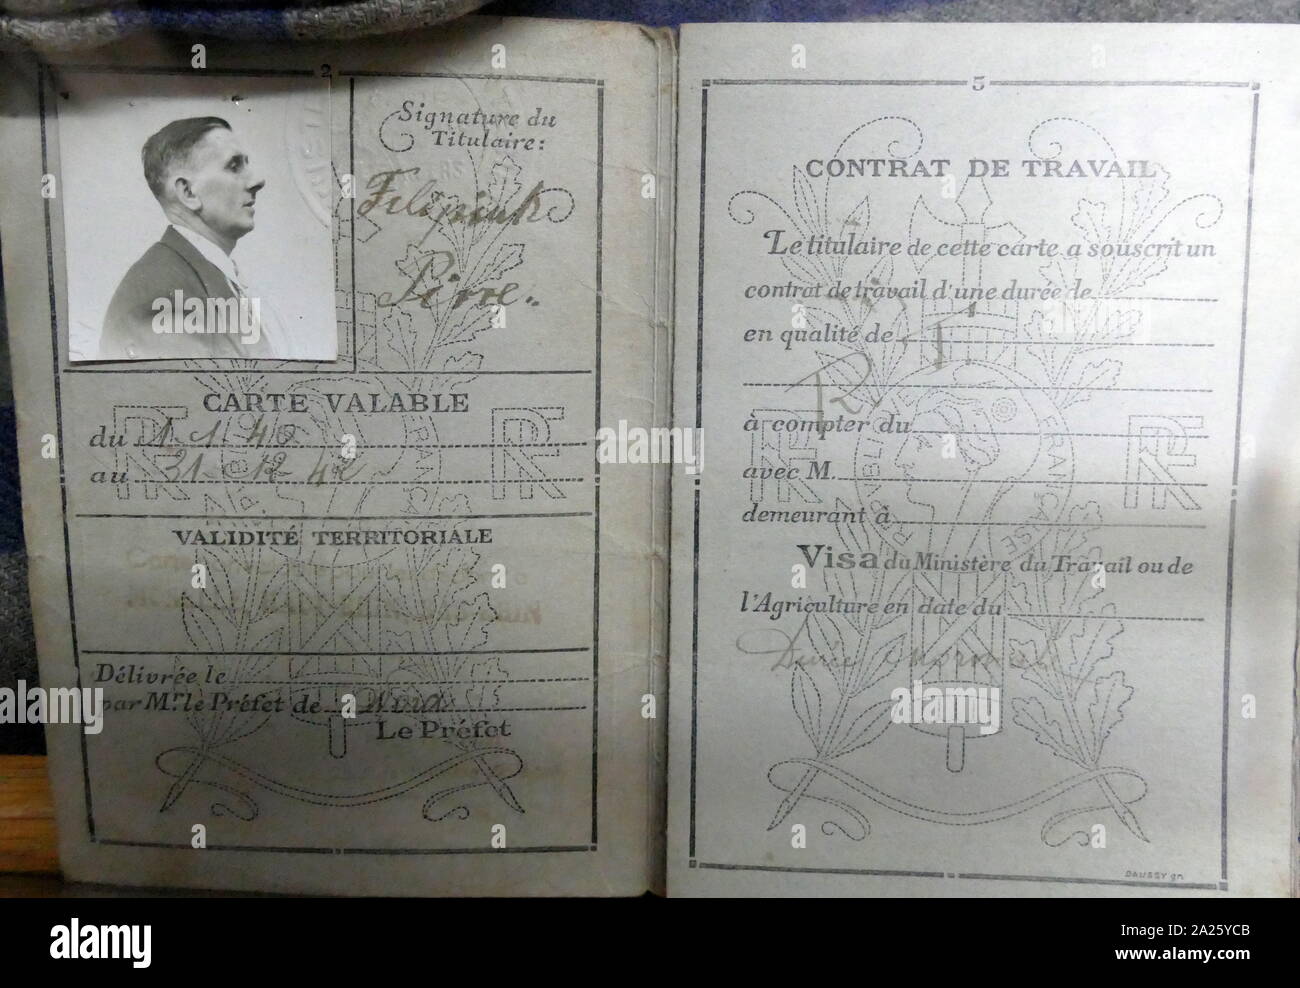 2
Signature du
Titulaire:
Pierre..
CARTE VALABLE
du 1. 1. 40
au 31 12 42
VALIDITÉ TERRITORIALE
Délivrée le
par Mr. le Préfet de
Le Préfet
RF
RF
5
CONTRAT DE TRAVAIL
Le titulaire de cette carte a souscrit un
contrat de travail d'une durée de
en qualité de
à compter du
avec M.
demeurant à
Visa du Ministère du Travail ou de
l'Agriculture en date du
RF
RF
RÉPUBLIQUE FRANÇAISE
DAUSSY gr.
alamy
Image ID: 2A25YCB
www.alamy.com